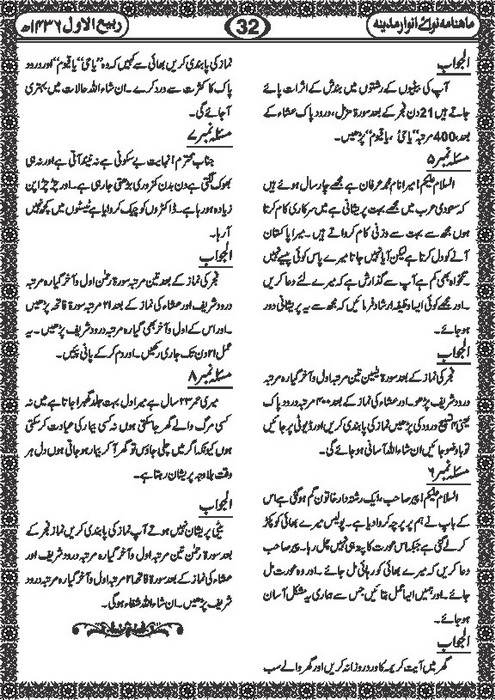 ماہنامہ نوائے انوار مدینہ
32
ربیع الاول ۱۴۳۶ھ
الجواب
آپ کی بیٹیوں کے رشتوں میں بندش کے اثرات پائے
جاتے ہیں 21 دن فجر کے بعد سورۃ مزمل، درود پاک عشاء کے
بعد، 400 مرتبہ ”یا حیُّ، یا قیوم“ پڑھیں۔
مسئلہ نمبر ۵
السلام علیکم! میرا نام محمد عرفان ہے مجھے چار سال ہوئے ہیں
کہ سعودی عرب میں مجھے بہت پریشانی ہے میں سرکاری کام کرتا
ہوں مجھ سے بہت سے وزنی کام کرواتے ہیں۔ میرا پاکستان
آنے کو دل کرتا ہے لیکن آیا نہیں جاتا میرے پاس کوئی پیسے نہیں
۔ تنخواہ بھی کم ہے آپ سے گذارش ہے کہ میرے لئے دعا کریں
۔ اور مجھے کوئی ایسا وظیفہ ارشاد فرمائیں کہ مجھ سے یہ پریشانی دور
ہو جائے۔
الجواب
فجر کی نماز کے بعد سورۃ یٰسین تین مرتبہ اول و آخر گیارہ مرتبہ
درود شریف پڑھو۔ اور عشاء کی نماز کے بعد ۴۰۰ مرتبہ درود پاک
یعنی ۴ تسبیح درود کی پڑھیں نماز کی پابندی کریں اور ڈیوٹی پر جائیں
تو باوضو جائیں ان شاء اللہ آسانی ہو جائے گی۔
مسئلہ نمبر ۶
السلام علیکم! پیر صاحب، ایک رشتہ دار خاتون گم ہو گئی ہے اس
کے باپ نے ہم پر پرچہ کروا دیا ہے۔ پولیس میرے بھائی کو پکڑ
کر لے گئی ہے جبکہ اس عورت کا پتہ ہی نہیں چل رہا۔ پیر صاحب
دعا کریں کہ میرے بھائی کو رہائی مل جائے۔ اور وہ عورت مل
جائے۔ اور ہمیں ایسا عمل بتائیں جس سے ہماری یہ مشکل آسان
ہو جائے۔
الجواب
گھر میں آیت کریمہ کا ورد روزانہ کریں اور گھر والے سب
نماز کی پابندی کریں بھائی سے کہیں کہ وہ ”یا حیُّ، یا قیوم“ اور درود
پاک کا کثرت سے ورد کرے۔ ان شاء اللہ حالات میں بہتری
آ جائے گی۔
مسئلہ نمبر ۷
جناب محترم! نہایت بے سکونی ہے نہ نیند آتی ہے اور نہ ہی
بھوک لگتی ہے دن بدن کمزوری بڑھتی جا رہی ہے۔ اور چڑچڑا پن
زیادہ ہو رہا ہے۔ ڈاکٹروں کو چیک کروایا ہے ٹیسٹوں میں کچھ نہیں
آ رہا۔
الجواب
فجر کی نماز کے بعد تین مرتبہ سورۃ رحمٰن اول و آخر گیارہ مرتبہ
درود شریف اور عشاء کی نماز کے بعد ۲۱ مرتبہ سورۃ فاتحہ پڑھیں
۔ اور اس کے اول و آخر بھی گیارہ مرتبہ درود شریف پڑھیں۔ یہ
عمل ۲۱ دن تک جاری رکھیں۔ اور دم کر کے پانی پئیں۔
مسئلہ نمبر ۸
میری عمر ۲۳ سال ہے میرا دل بہت جلد گھبرا جاتا ہے میں نہ
کسی مرگ والے گھر جا سکتی ہوں نہ کسی بیمار کی عیادت کر سکتی
ہوں کیونکہ اگر میں چلی جاؤں تو گھر آ کر بیمار ہو جاتی ہوں دل ہر
وقت بلاوجہ پریشان رہتا ہے۔
الجواب
بیٹی پریشان نہیں ہوتے آپ نماز کی پابندی کریں نماز فجر کے
بعد سورۃ رحمٰن تین مرتبہ اول و آخر گیارہ مرتبہ درود شریف اور
عشاء کی نماز کے بعد سورۃ فاتحہ ۲۱ مرتبہ اول و آخر گیارہ مرتبہ درود
شریف پڑھیں۔ ان شاء اللہ شفاء ہو گی۔